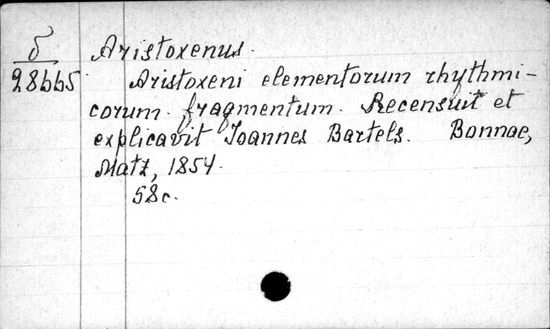 б
28665
Aristoxenus.
Aristoxeni elementorum rhythmi-
corum fragmentum. Recensuit et
explicavit Ioannes Bartels. Bonnae,
Matz, 1854.
58c.